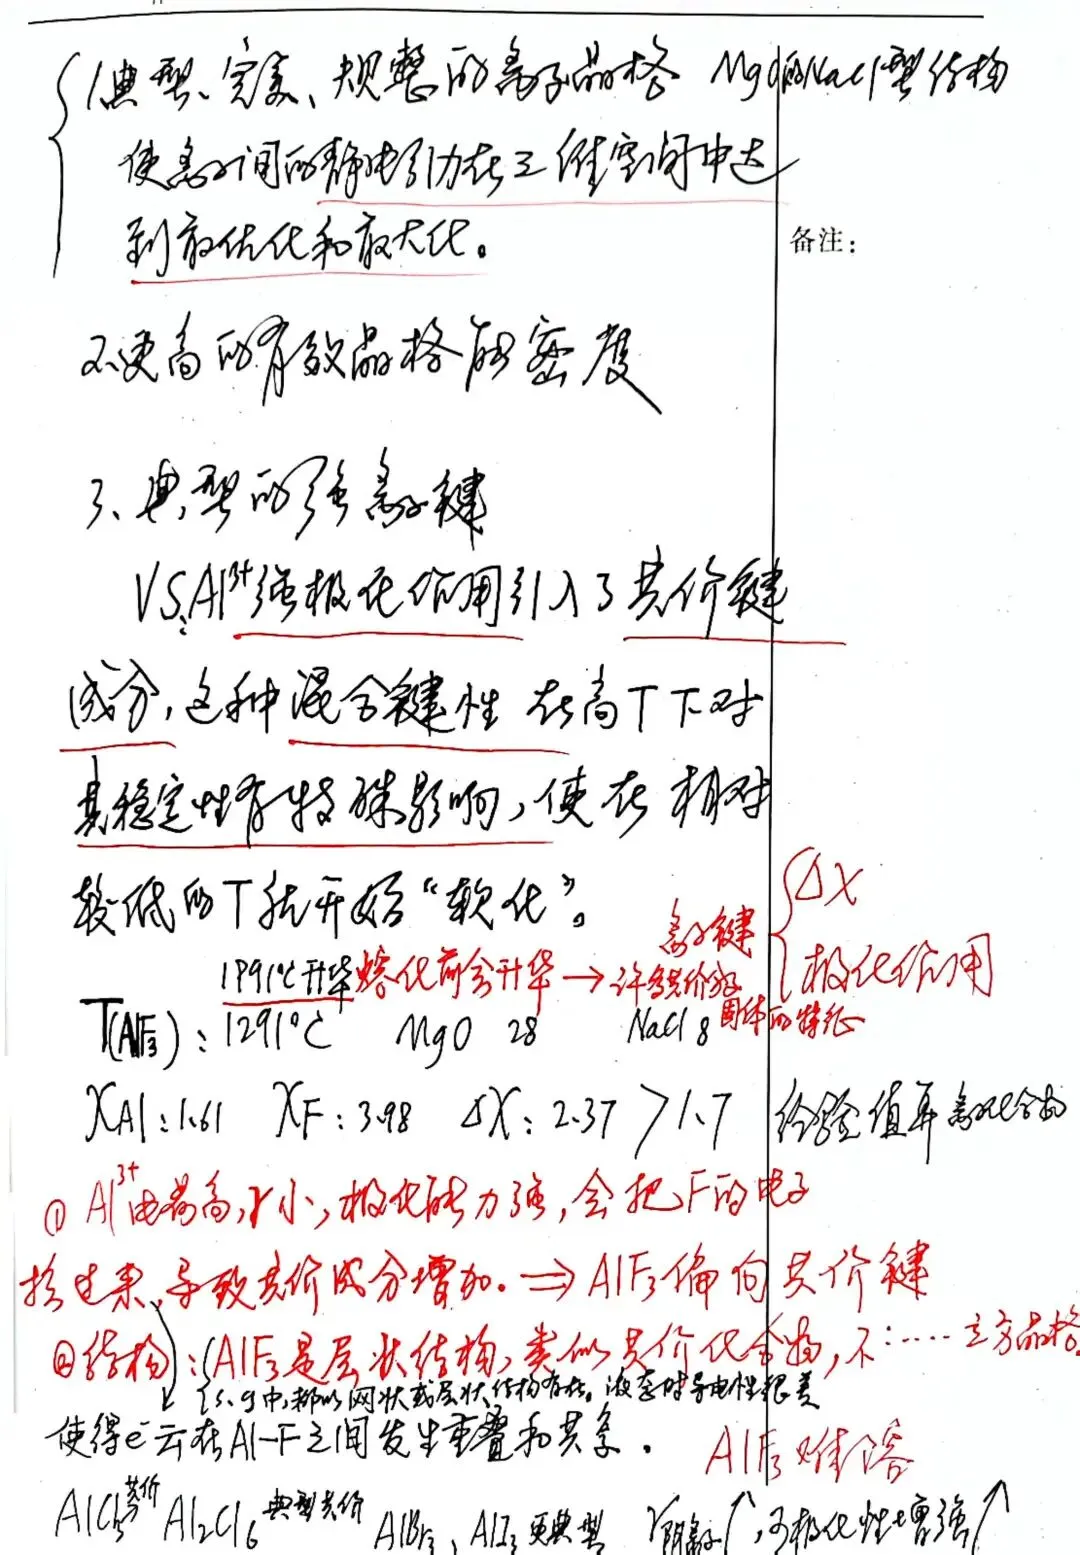 1.典型、完美、规整的离子晶格 MgO的NaCl型结构
使离子间的静电引力在三维空间中达
到最优化和最大化。
备注：
2.更高的有效晶格能密度
3、典型的强离子键
VS:Al³⁺强极化作用引入了共价键
成分,这种混合键性 在高T下对
其稳定性有特殊影响,使在相对
较低的T就开始“软化”。
ΔX
离子键
极化作用
1291℃升华 熔化前会升华→许多共价
固体的特征
T(AlF₃):1291℃ MgO 28 NaCl 8
XAl:1.61 XF:3.98 ΔX:2.37 >1.7 经验值 离子化合物
① Al³⁺电荷高,r小,极化能力强,会把F的电子
拉过来,导致共价成分增加.⇒AlF₃偏向共价键
②结构:(AlF₃是层状结构,类似共价化合物,不:……立方晶格.
ls.g中,都以网状或层状结构存在。液态时导电性很差
使得e⁻云在Al-F之间发生重叠和共享.
AlF₃难溶
AlCl₃共价 Al₂Cl₆典型共价 AlBr₃、AlI₃更典型 r阴离子↑,可极化性增强↑